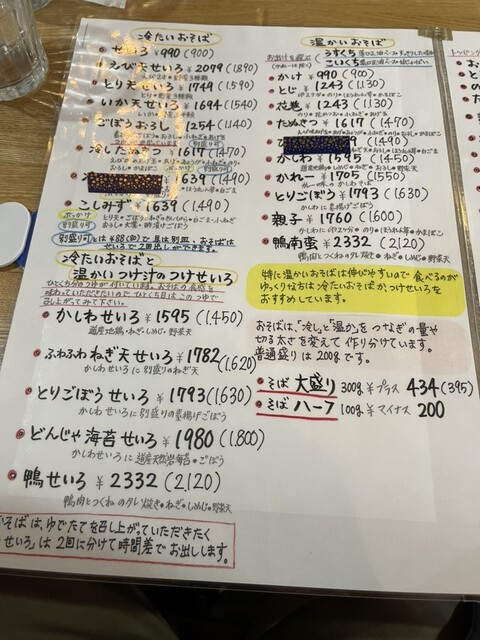 冷たいおそば
せいろ ¥990(900)
えび天せいろ ¥2079(1,890)
とり天せいろ ¥1749(1,590)
いか天せいろ ¥1694(1,540)
ごぼうおろし ¥1254(1,140)
冷したぬき ¥1617(1,470)
1639(1,490)
こしみず ¥1639(1,490)
ぶっかけ
別盛り可
別盛り可とは¥88(80)で具は別皿、おそばは
せいろで2回出しができます。
冷たいおそばと
温かいつけ汁のつけせいろ
ひとくち分のつゆが付いています。おそばの食感を
味わっていただきたいのでひとくち目はこのつゆで
召し上がってみて下さい。
かしわせいろ ¥1595(1,450)
道産地鶏・ねぎ・しめじ・野菜天
ふわふわねぎ天せいろ ¥1782(1,620)
かしわせいろに別盛りのねぎ天
とりごぼうせいろ ¥1793(1,630)
かしわせいろに別盛りの素揚げごぼう
どんじゃ海苔せいろ ¥1980(1,800)
かしわせいろに道産天然岩海苔・ごぼう
鴨せいろ ¥2332(2,120)
鴨肉とつくねのタレ焼き・ねぎ・しめじ・野菜天
おそばは、ゆでたてを召し上がっていただきたく
せいろ」は2回に分けて時間差でお出しします。
温かいおそば
お出汁を選ぶ
うすくち
こいくち
かけ ¥990(900)
とじ ¥1243(1,130)
花巻 ¥1243(1,130)
たぬきつ ¥1617(1,470)
9(1,490)
かしわ ¥1595(1,450)
かれー ¥1705(1,550)
とりごぼう ¥1793(1,630)
かしわに素揚げごぼう
親子 ¥1760(1,600)
鴨南蛮 ¥2332(2,120)
鴨肉とつくねのタレ焼き・ねぎ・しめじ・野菜天
特に温かいおそばは伸びやすいので食べるのが
ゆっくりな方は冷たいおそばかつけせいろを
おすすめしています。
おそばは、「冷し」と「温か」をつなぎの量や
切る太さを変えて作り分けています。
普通盛りは200gです。
そば 大盛り 300g ¥プラス 434(395)
そば ハーフ 100g ¥マイナス 200